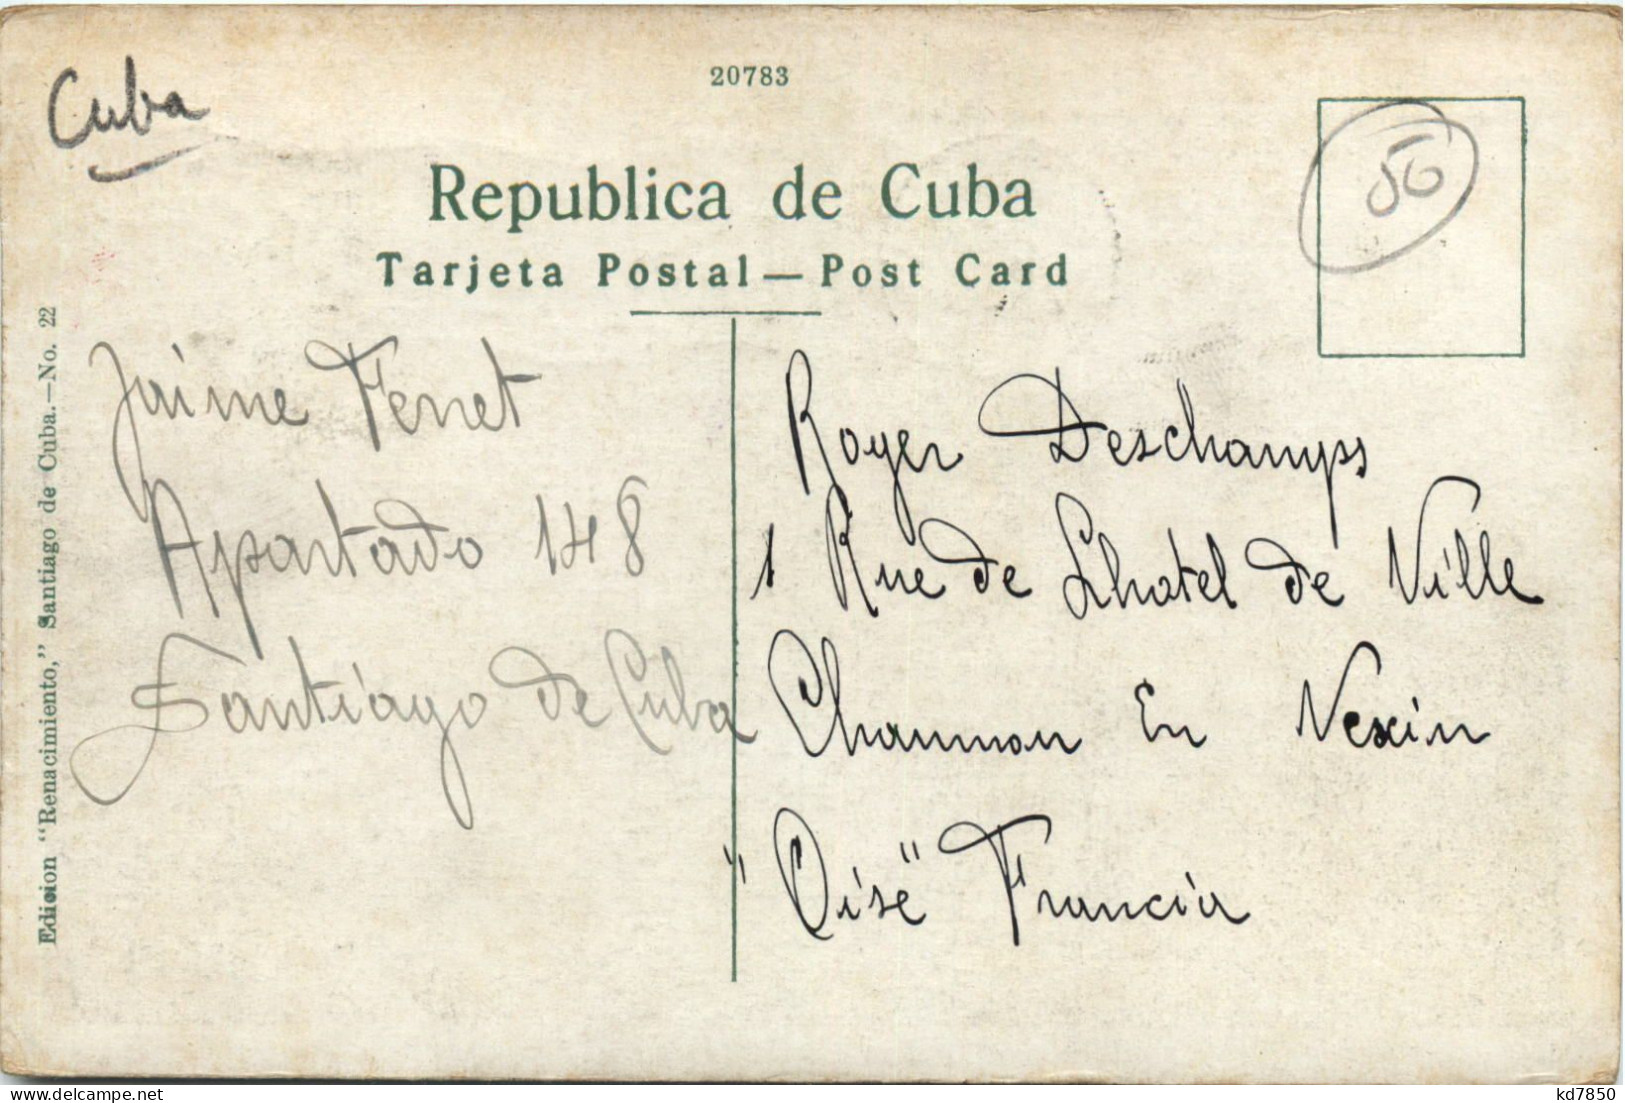 20783
Cuba
50
Republica de Cuba
Tarjeta Postal — Post Card
Edicion "Renacimiento," Santiago de Cuba.—No. 22
Jaime Fenet
Apartado 148
Santiago de Cuba
Roger Deschamps
1 Rue de Lhotel de Ville
Chaumon En Vexin
"Oise" Francia
www.delcampe.net
kd7850